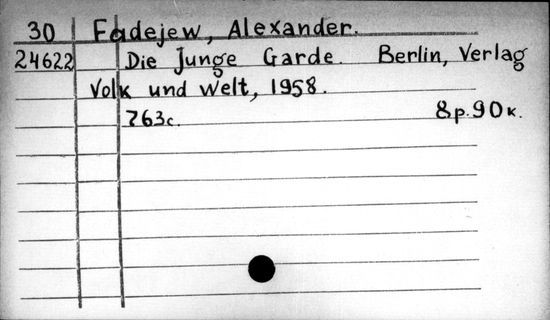 30 Fadejew, Alexander.
24622 Die Junge Garde. Berlin, Verlag
Volk und Welt, 1958.
763c. 8p.90к.